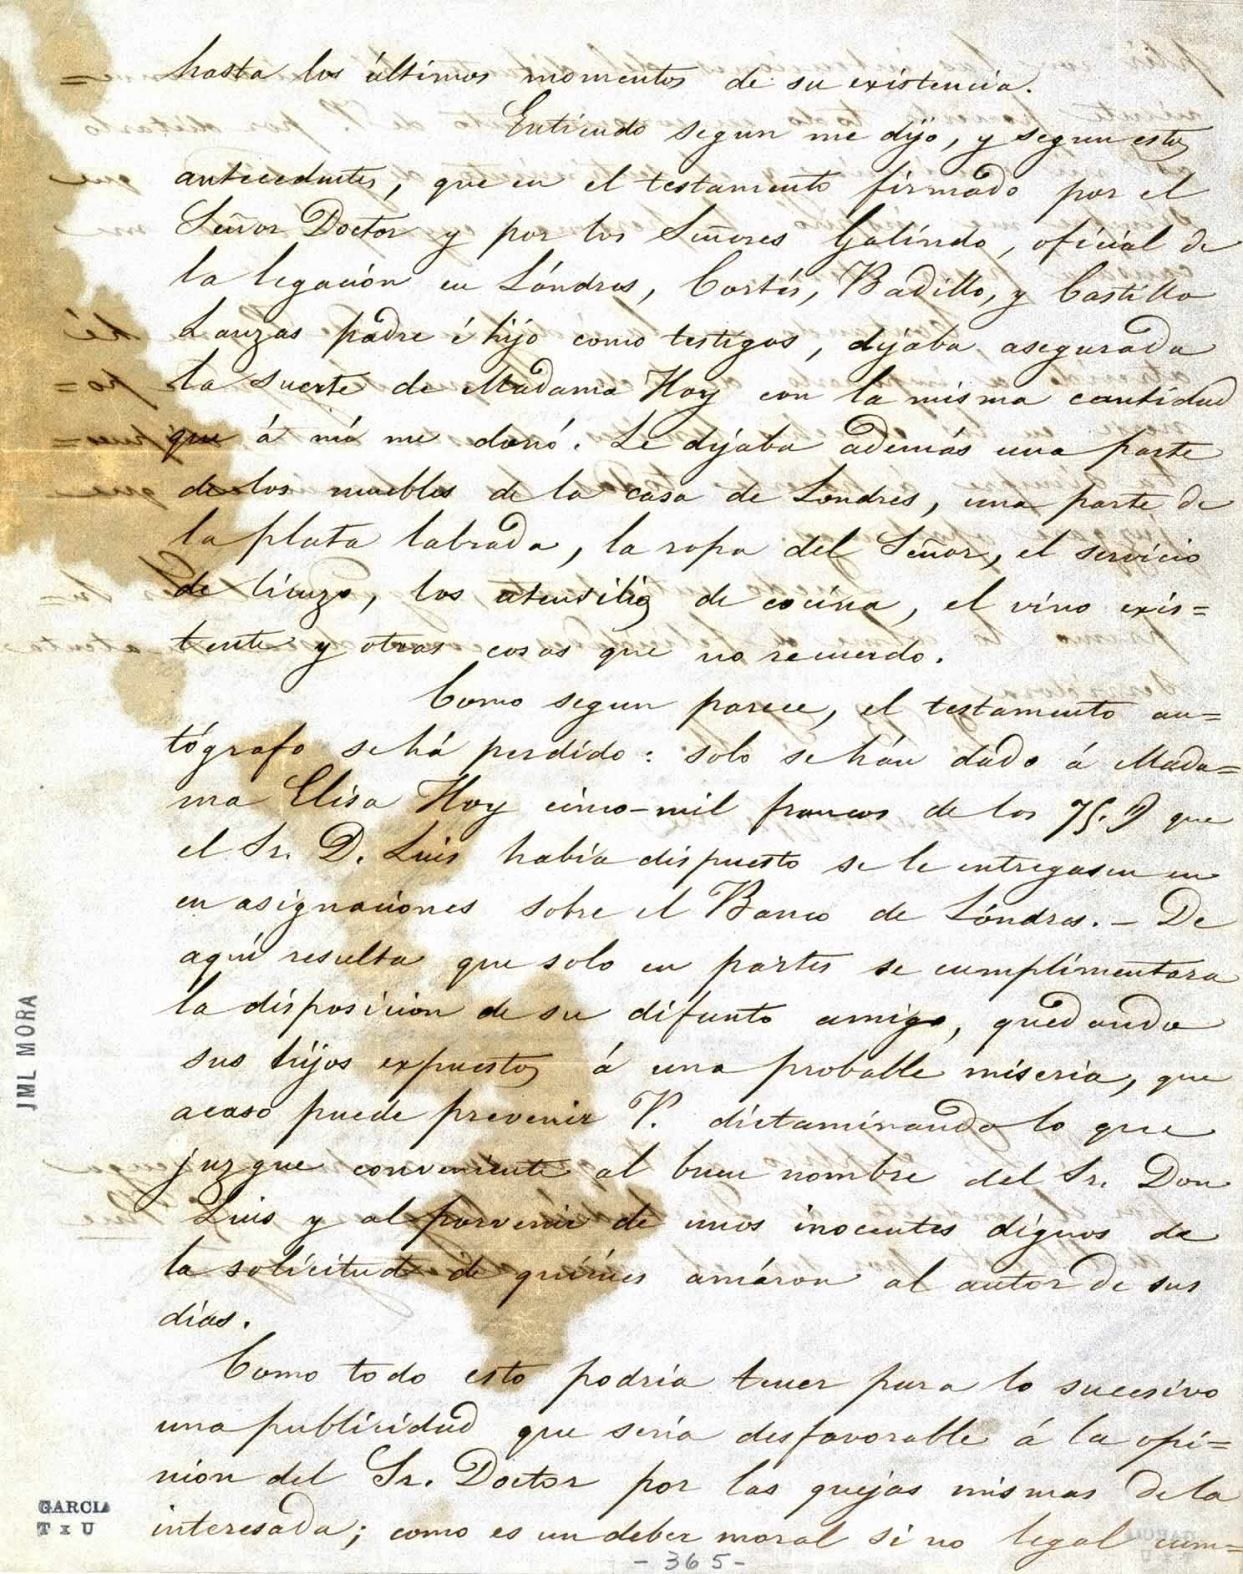 hasta los últimos momentos de su existencia.
Entiendo segun me dijo, y segun estos
antecedentes, que en el testamento firmado por el
Señor Doctor y por los Señores Galindo, oficial de
la legación en Lóndres, Cortés, Badillo, y Castillo
Lanzas padre é hijo como testigos, dejaba asegurada
la suerte de Madama Hoy con la misma cantidad
que á mí me donó. Le dejaba además una parte
de los muebles de la casa de Londres, una parte de
la plata labrada, la ropa del Señor, el servicio
de lienzo, los utensilios de cocina, el vino exis=
tente y otras cosas que no recuerdo.
Como segun parece, el testamento au=
tógrafo se há perdido: solo se hán dado á Mada=
ma Elisa Hoy cinco-mil francos de los 75.0 que
el Sr. D. Luis había dispuesto se le entregasen en
en asignaciones sobre el Banco de Lóndres. - De
aquí resulta que solo en partes se cumplimentara
la disposicion de su difunto amigo, quedando
sus hijos expuestos á una probable miseria, que
acaso puede prevenir V. dictaminando lo que
juzgue conveniente al buen nombre del Sr. Don
Luis y al porvenir de unos inocentes dignos de
la solicitud de quiénes amáron al autor de sus
días.
Como todo esto podría tener para lo sucesivo
una publicidad que sería desfavorable á la opi=
nion del Sr. Doctor por las quejas mismas de la
interesada; como es un deber moral si no legal cum=
- 365 -
JML MORA
GARCIA
TxU